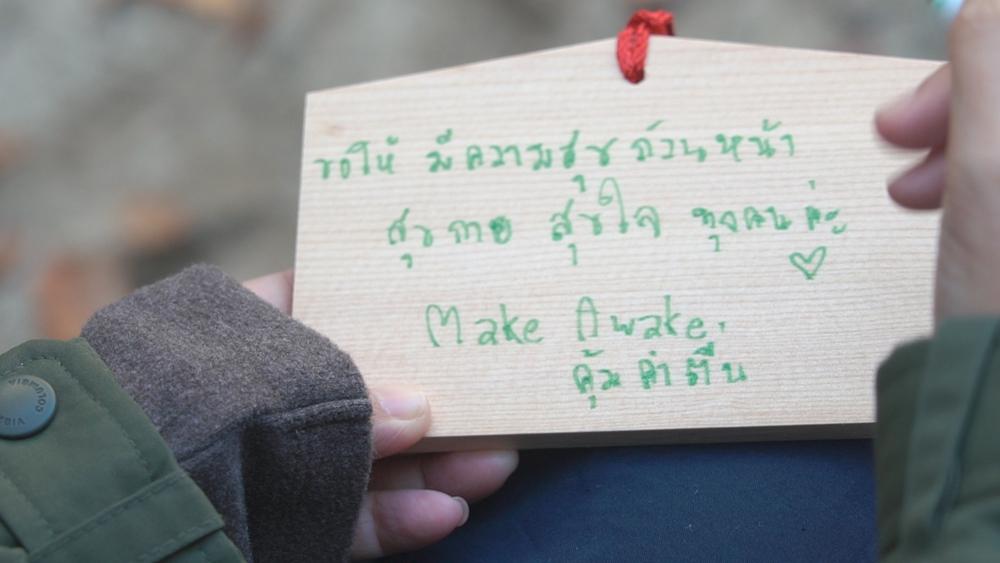 ขอให้ มีความสุข ถ้วนหน้า
สุขกาย สุขใจ ทุกคน ค่ะ
Make Awake.
คุ้มค่าตื่น